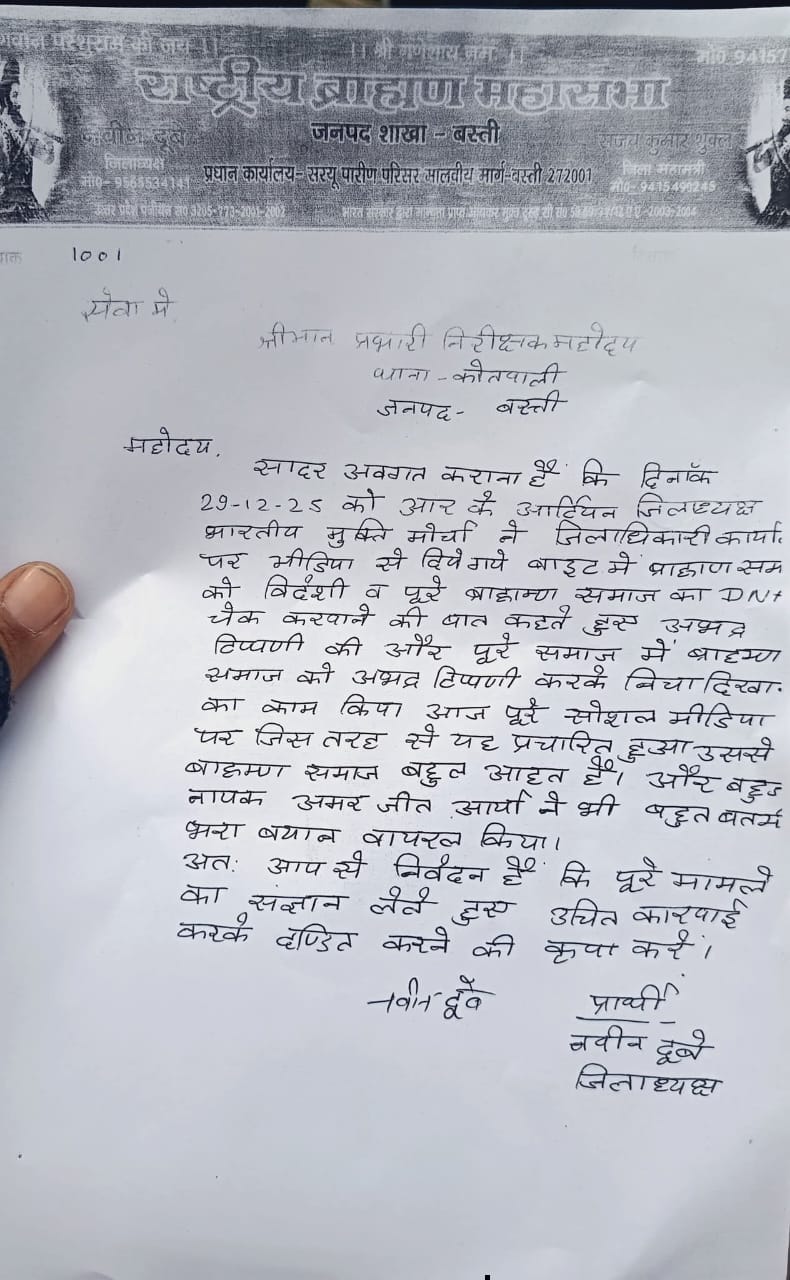 भगवान परशुराम की जय ।। ।। श्री गणेशाय नमः ।। मो0 94157
राष्ट्रीय ब्राह्मण महासभा
जनपद शाखा - बस्ती
नवीन दूबे
जिलाध्यक्ष
मो0- 9565534141
संजय कुमार शुक्ल
जिला महामंत्री
मो0- 9415490245
प्रधान कार्यालय- सरयू पारीण परिसर मालवीय मार्ग-बस्ती 272001
उत्तर प्रदेश पंजीयन सं0
भारत सरकार द्वारा मान्यता प्राप्त आयकर मुक्त
1001
सेवा मे
श्रीमान प्रभारी निरीक्षक महोदय
थाना - कोतवाली
जनपद - बस्ती
महोदय,
सादर अवगत कराना है कि दिनाँक
29-12-25 को आर के आर्टियन जिलाध्यक्ष
भारतीय मुक्ति मोर्चा ने जिलाधिकारी कार्या.
पर मीडिया से दिये गये बाइट में ब्राह्मण सम
को विदेशी व पूरे ब्राह्मण समाज का DNA
चेक करवाने की बात कहते हुए अभद्र
टिप्पणी की और पूरे समाज में ब्राह्मण
समाज को अभद्र टिप्पणी करके निचा दिखा.
का काम किया आज पूरे सोशल मीडिया
पर जिस तरह से यह प्रचारित हुआ उससे
ब्राह्मण समाज बहुत आहत है। और
नायक अमर जीत आर्या ने भी बहुत
भरा बयान वायरल किया।
अतः आप से निवेदन है कि पूरे मामले
का संज्ञान लेते हुए उचित कारवाई
करके दण्डित करने की कृपा करें।
नवीन दूबे
प्रार्थी
नवीन दूबे
जिलाध्यक्ष